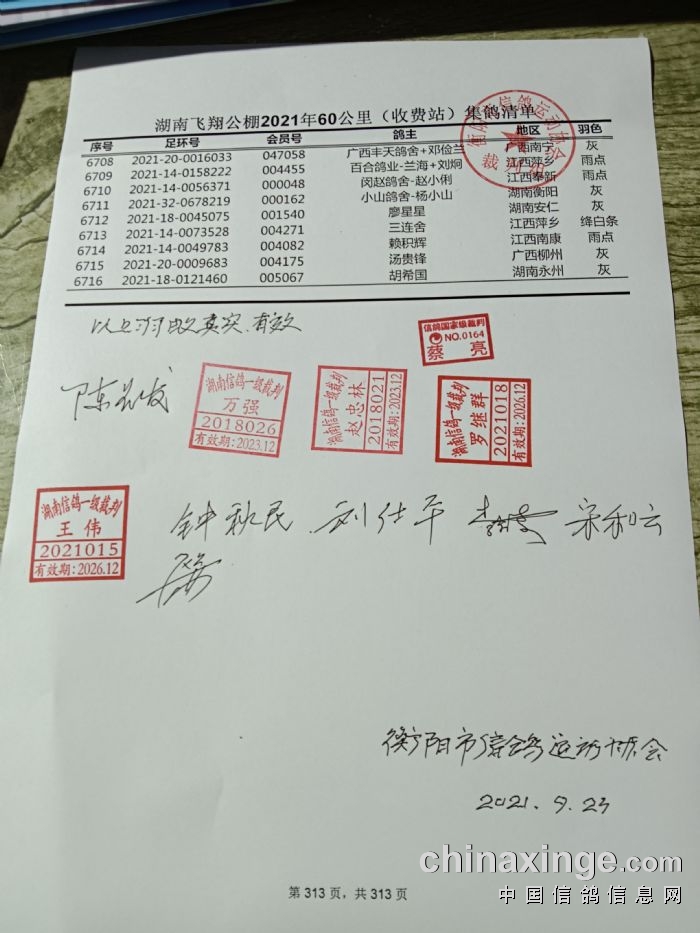 湖南飞翔公棚2021年60公里（收费站）集鸽清单
序号 足环号 会员号 鸽主 地区 羽色
6708 2021-20-0016033 047058 广西丰天鸽舍+邓俭兰 广西南宁 灰
6709 2021-14-0158222 004455 百合鸽业-兰海+刘炯 江西萍乡 雨点
6710 2021-14-0056371 000048 闵赵鸽舍-赵小俐 江西奉新 雨点
6711 2021-32-0678219 000162 小山鸽舍-杨小山 湖南衡阳 灰
6712 2021-18-0045075 001540 廖星星 湖南安仁 灰
6713 2021-14-0073528 004271 三连舍 江西萍乡 绛白条
6714 2021-14-0049783 004082 赖积辉 江西南康 雨点
6715 2021-20-0009683 004175 汤贵锋 广西柳州 灰
6716 2021-18-0121460 005067 胡希国 湖南永州 灰
真实、有效
信鸽国家级裁判
NO.0164
蔡亮
湖南信鸽一级裁判
万强
2018026
有效期:2023.12
湖南信鸽一级裁判
赵忠林
2018021
有效期:2023.12
湖南信鸽一级裁判
罗继群
2021018
有效期:2026.12
湖南信鸽一级裁判
王伟
2021015
有效期:2026.12
钟秋民 刘仕平 宋和云
衡阳市信鸽运动协会
2021.9.23
chinaxinge.com
中国信鸽信息网
第 313 页，共 313 页